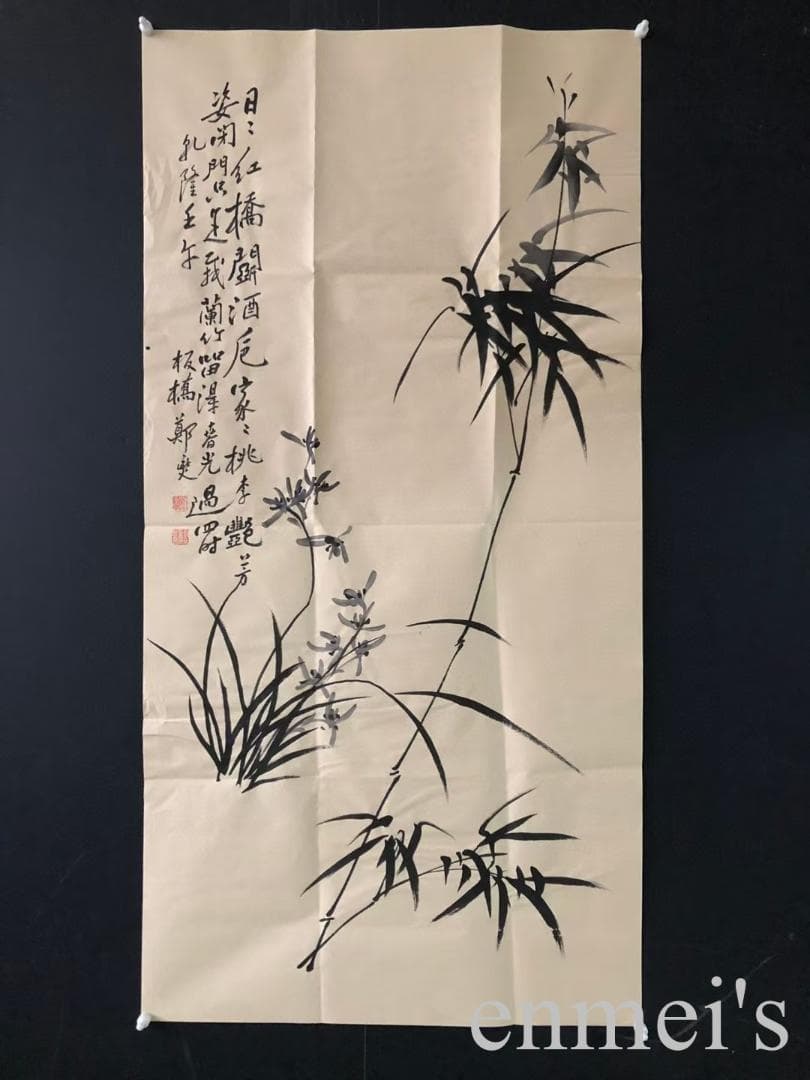 日〻紅橋鬪酒卮家〻桃李艷芳
姿閉門只是栽蘭竹留得春光過四时
乾隆壬午
板橋鄭燮
enmei's